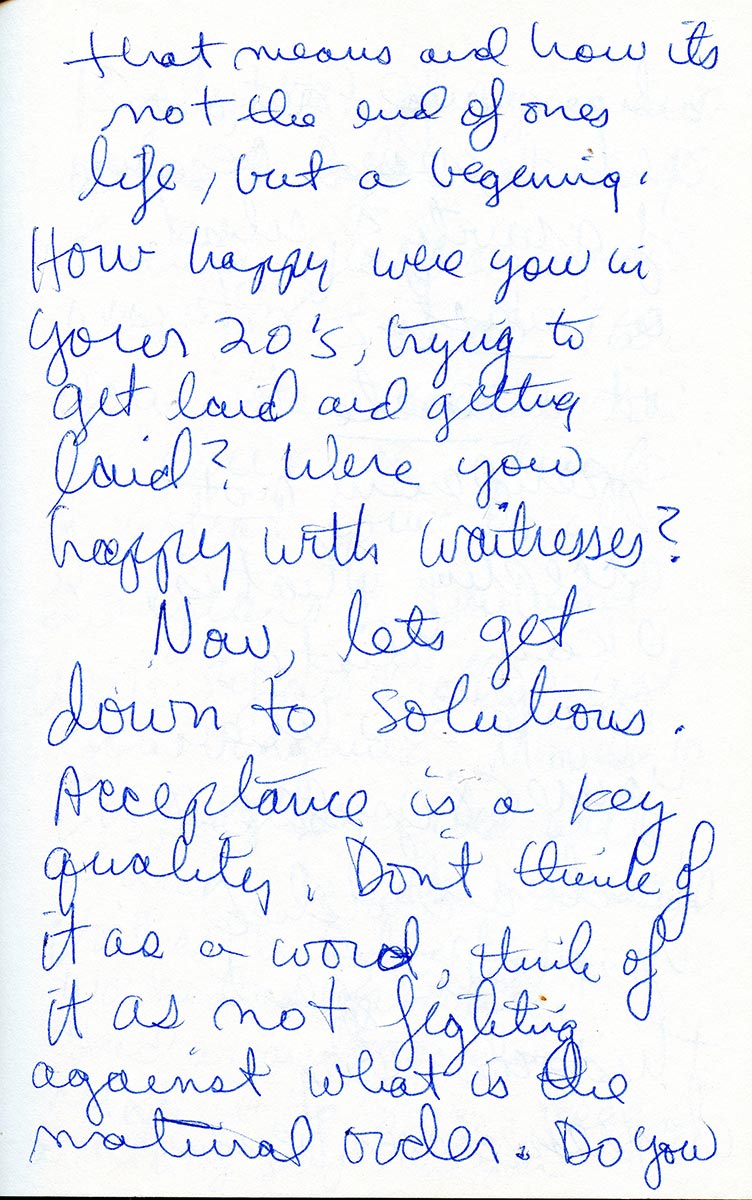 that means and how its
not the end of ones
life, but a begening.
How happy were you in
your 20's, trying to
get laid and getting
laid? Were you
happy with waitresses?
Now, lets get
down to solutions.
Acceptance is a key
quality. Don't think of
it as a word, think of
it as not fighting
against what is the
natural order. Do you